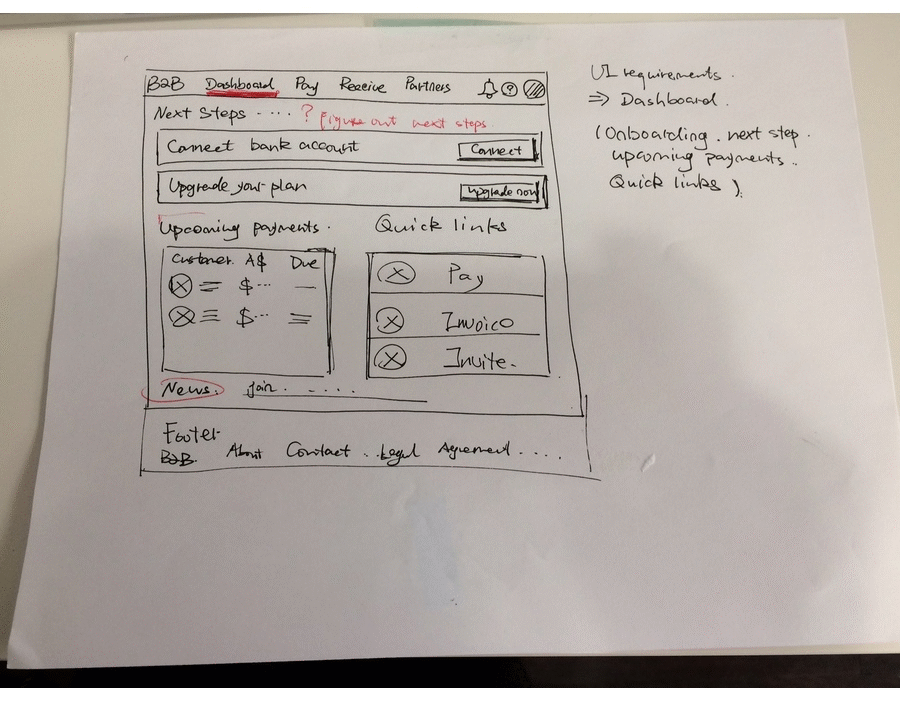 B2B Dashboard Pay Receive Partners ?
Next Steps .... ? Figure out next steps.
Connect bank account Connect
Upgrade your plan upgrade now
Upcoming payments. Quick links
Customer. A$ Due
$... Pay
$... Invoice
Invite.
News. Join. ....
Footer
B2B. About Contact .. Legal Agreement ....
UI requirements.
=> Dashboard.
(Onboarding. next step.
upcoming payments..
Quick links).